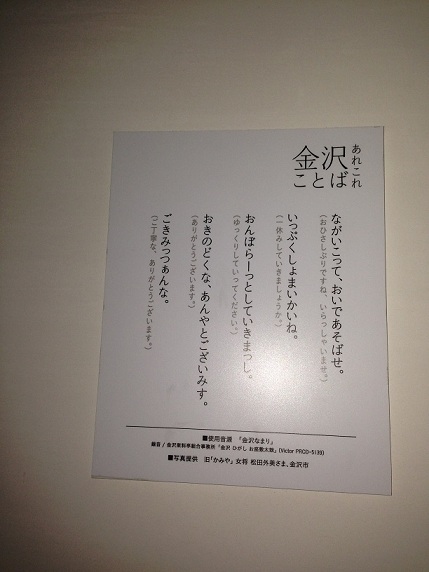 金沢
ことば
あれこれ
ながいこって、おいであそばせ。
（おひさしぶりですね、いらっしゃいませ。）
いっぷくしょまいかいね。
（一休みしていきましょうか。）
おんぼらーっとしていきまっし。
（ゆっくりしていってください。）
おきのどくな、あんやとございみす。
（ありがとうございます。）
ごきみっつぁんな。
（ご丁寧な、ありがとうございます。）
■使用音源 「金沢なまり」
録音 / 金沢東料亭組合事務所「金沢 ひがし お座敷太鼓」(Victor PRCD-5139)
■写真提供 旧「かみや」女将 松田外美さま、金沢市